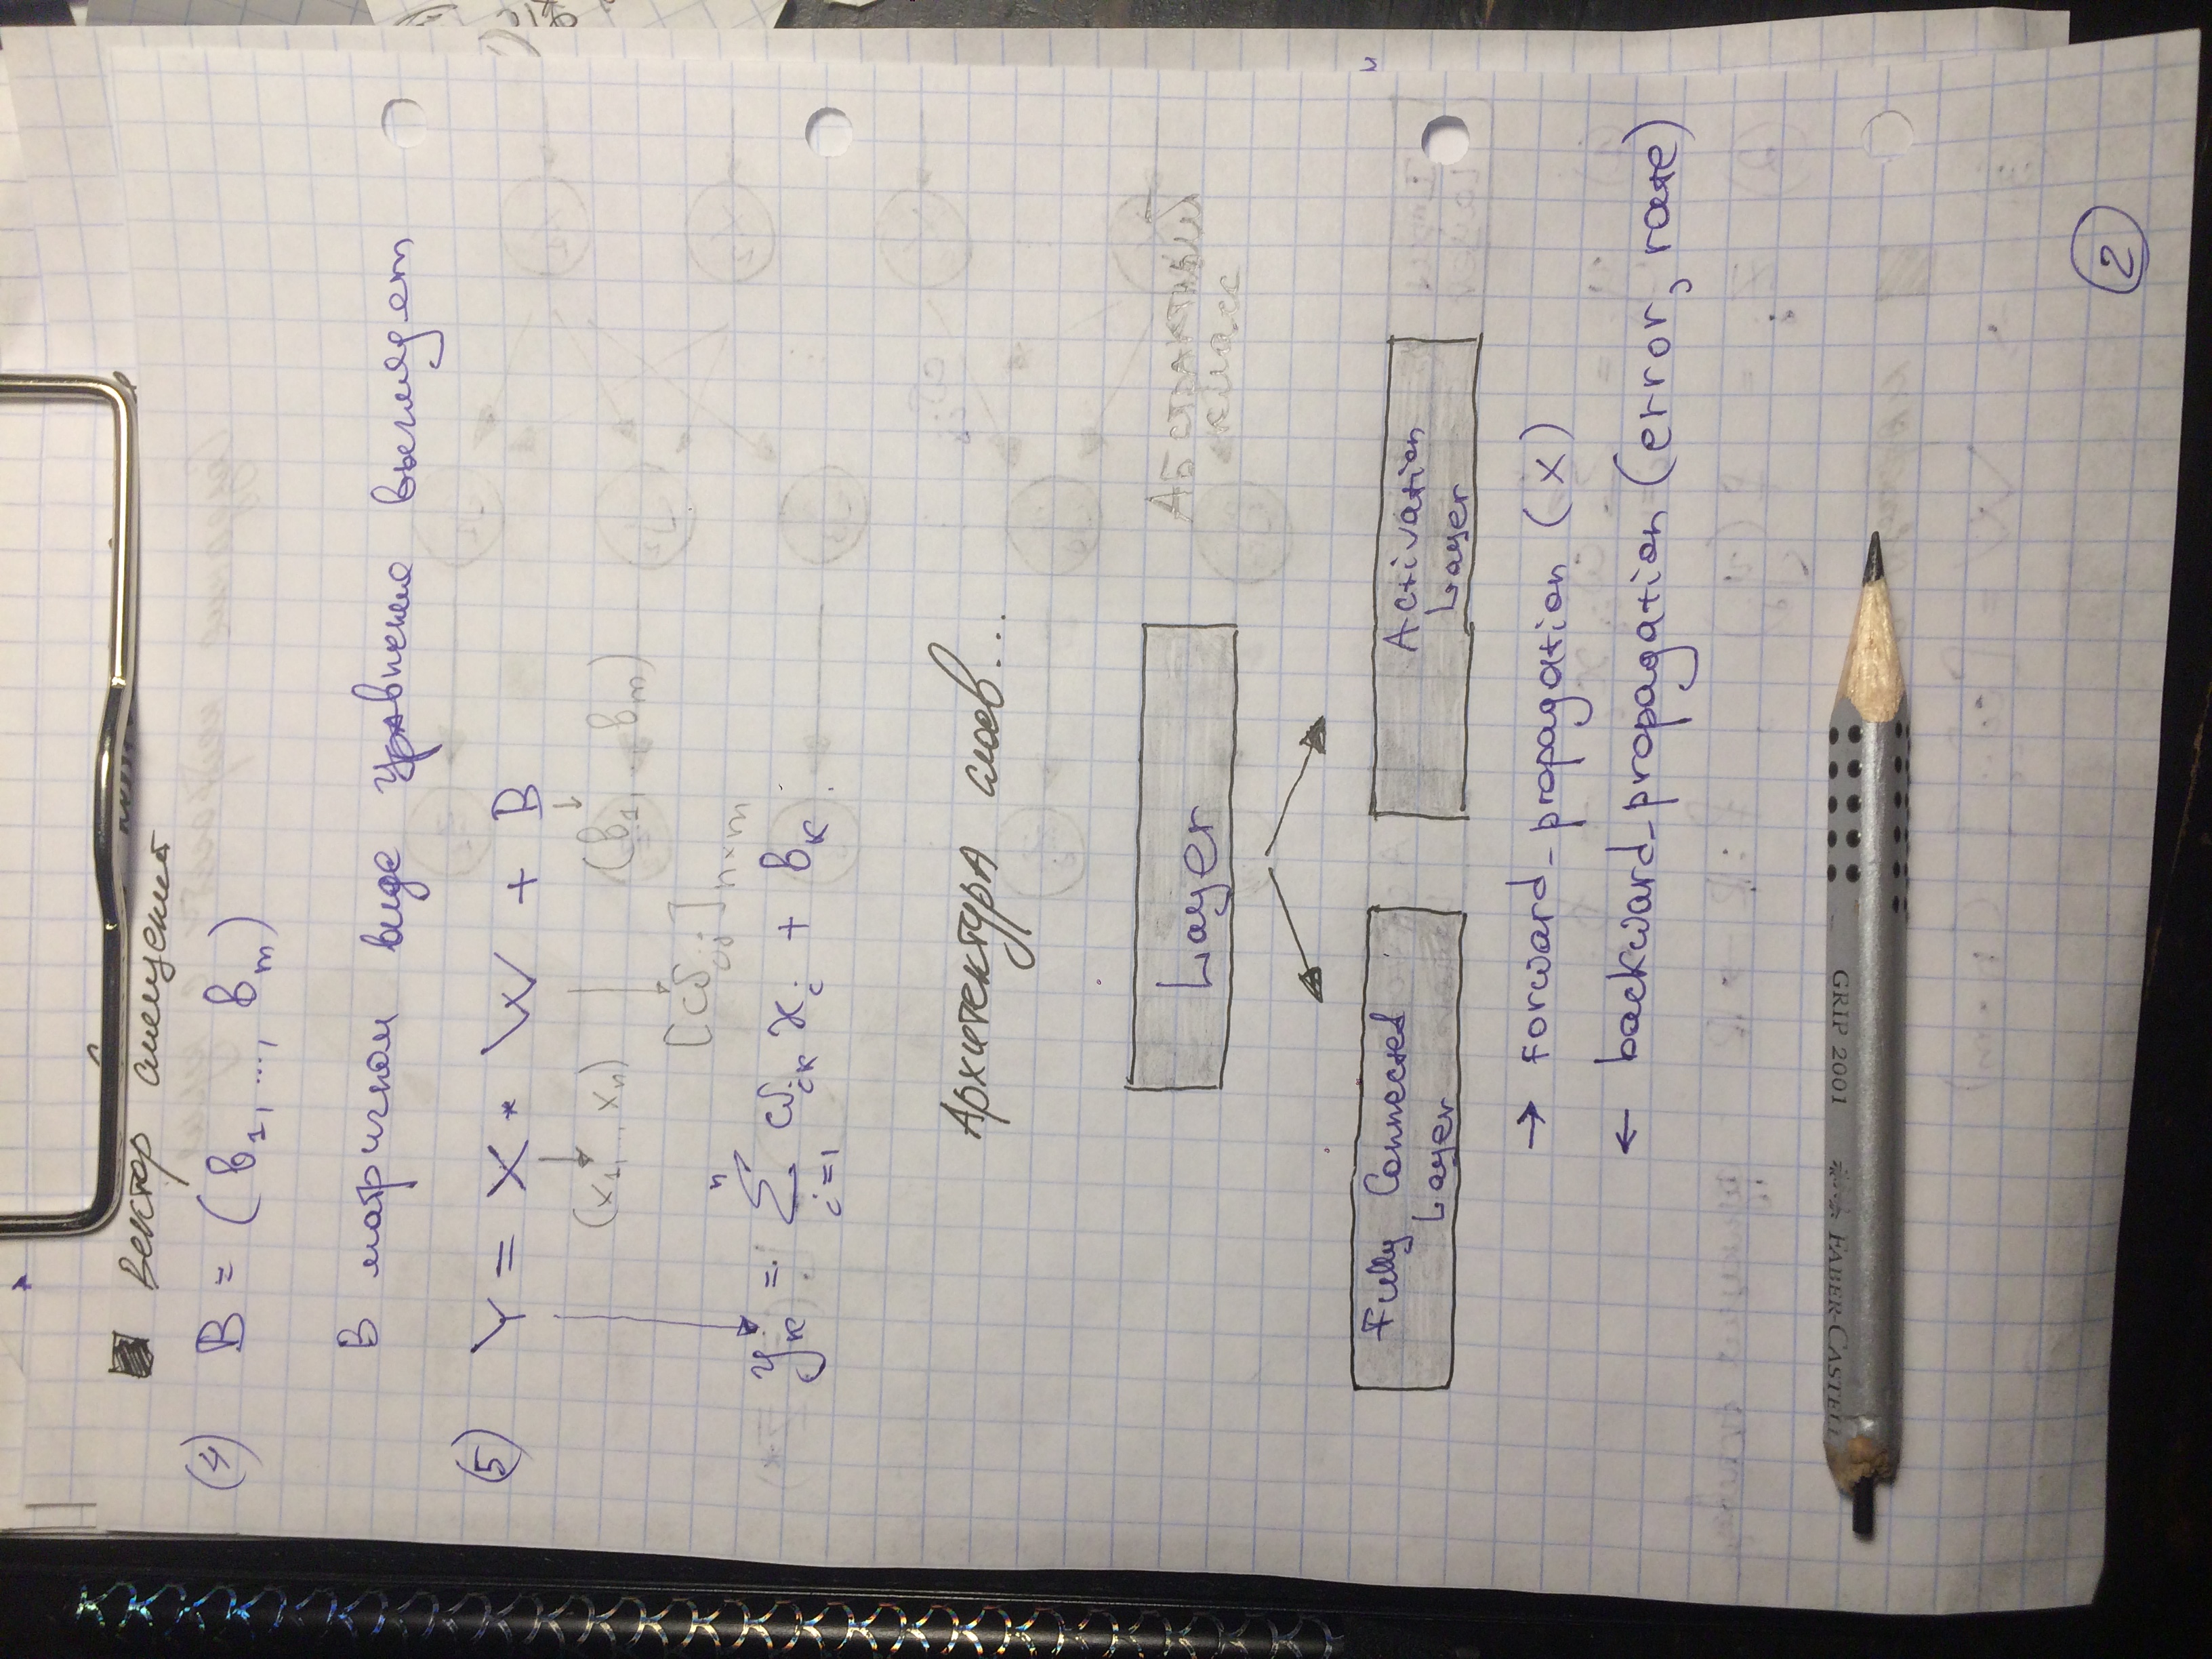 Вектор смещений
(4) B = (b₁, ..., bₘ)
В матричном виде уравнение выглядет
(5) Y = X * W + B
(x₁, .. xₙ)
(b₁, .., bₘ)
[ω_ij]_n×m
y_k = ∑_{i=1}^{n} ω_ik x_i + b_k.
Архитектура слоев...
Layer
Абстрактный
класс
Fully Connected
Layer
Activation
Layer
→ forward_propagation (x)
← backward_propagation (error, rate)
GRIP 2001 FABER-CASTELL
2